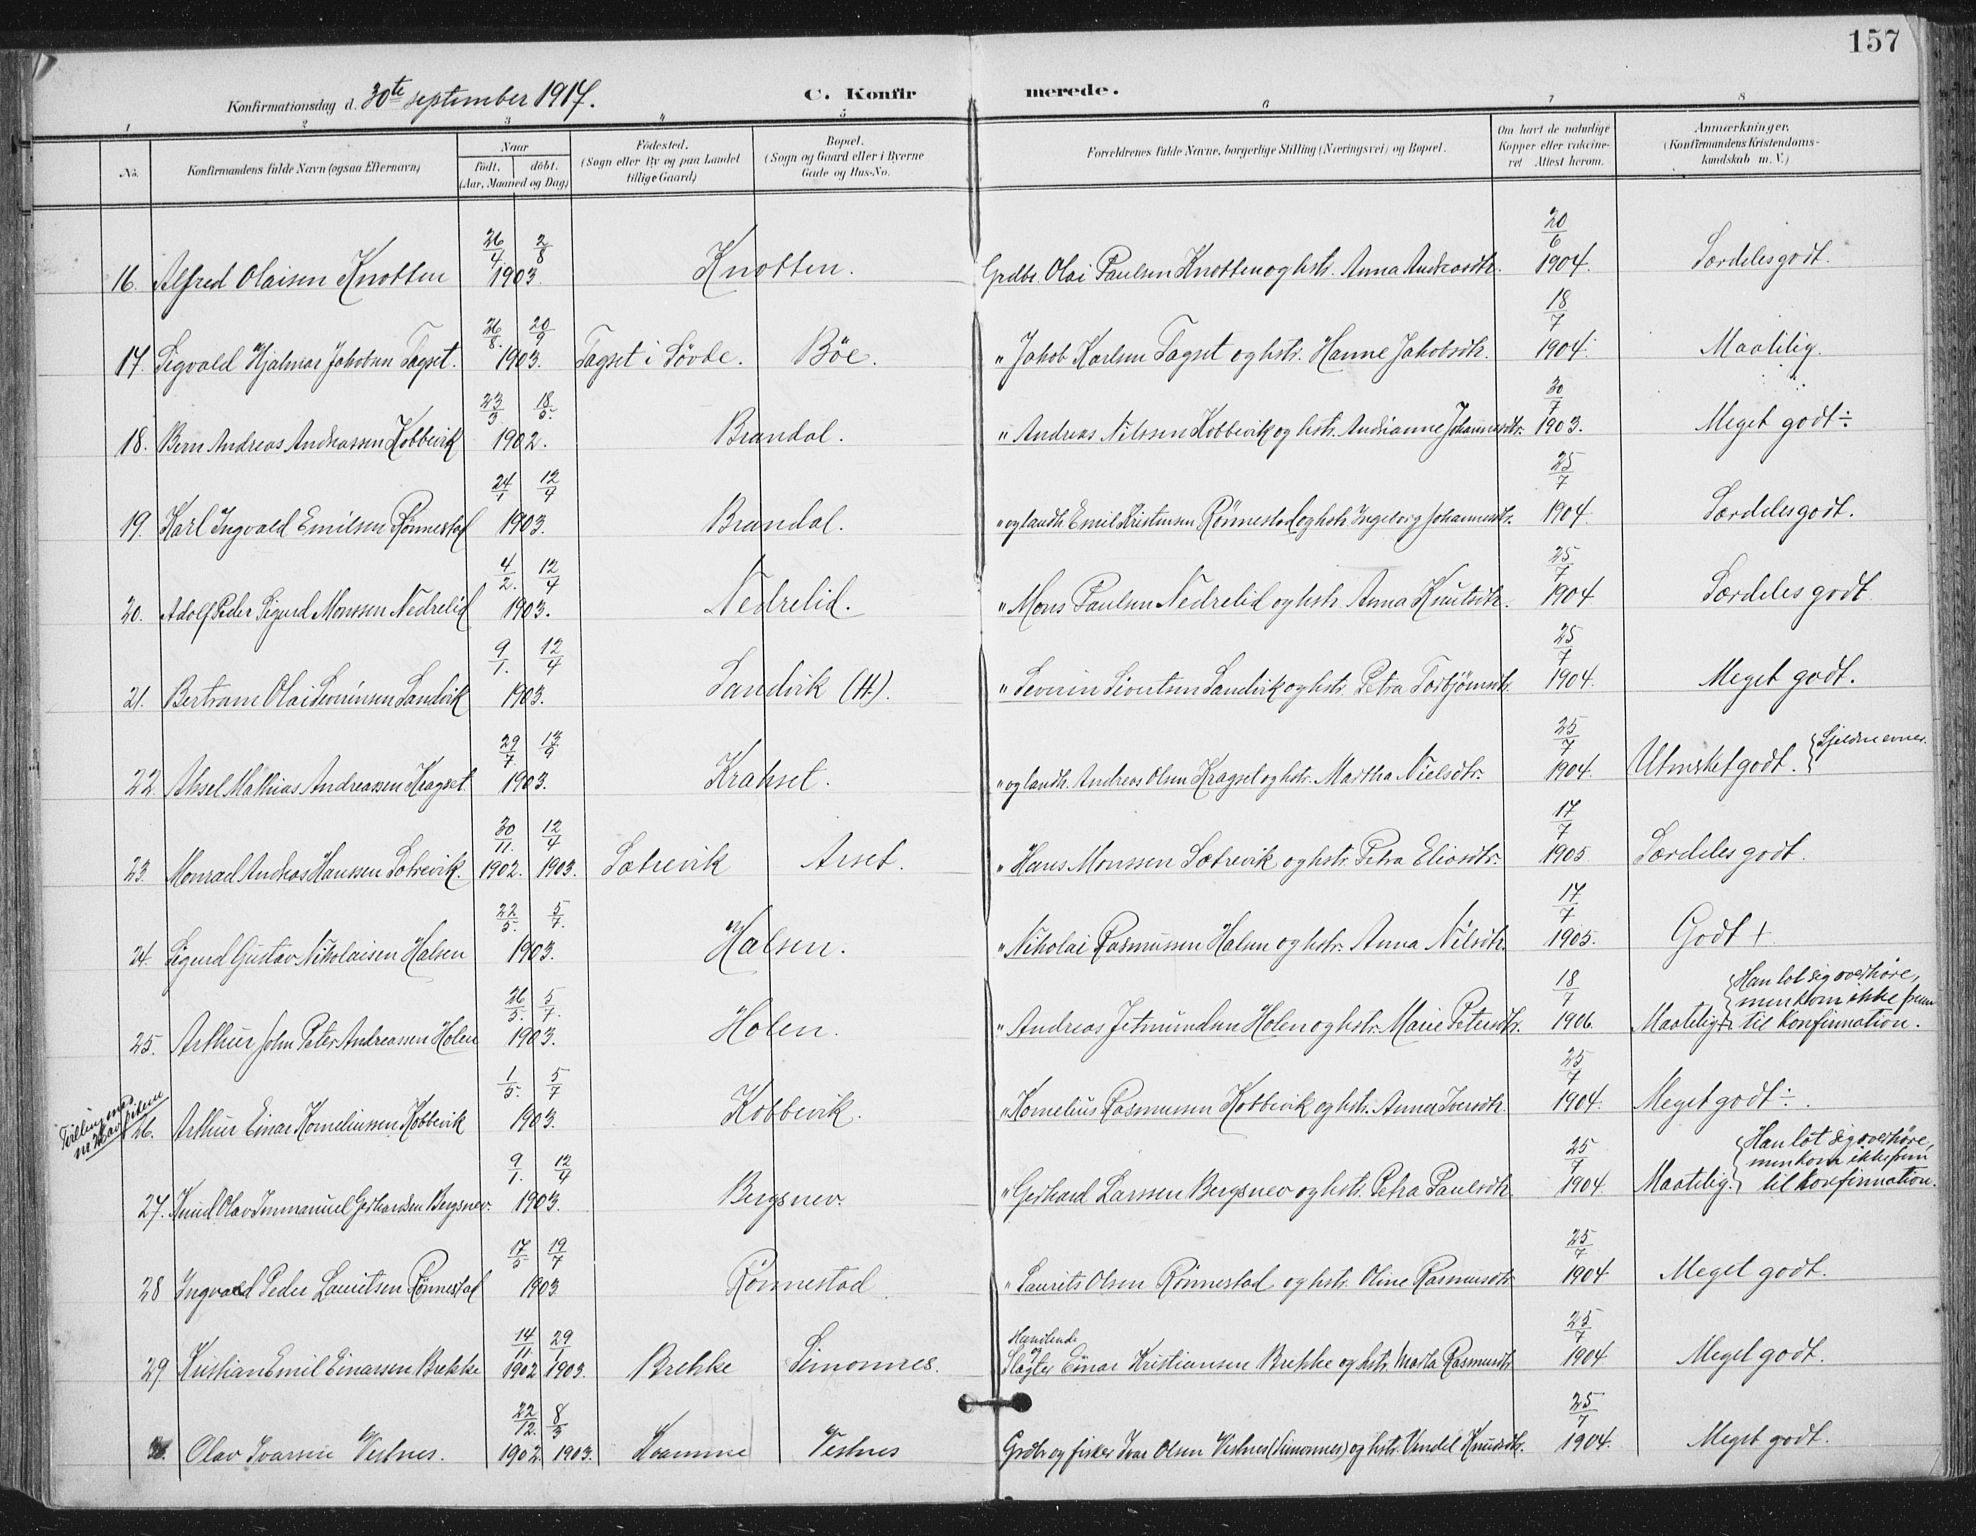 157
Konfirmationsdag d. 30te september 1917.
C. Konfirmerede.
1 2 3 4 5 6 7 8
No.
Konfirmandens fulde Navn (ogsaa Efternavn)
Naar
født. døbt.
(Aar, Maaned og Dag)
Fødested.
(Sogn eller By og paa Landet
tillige Gaard)
Bopæl.
(Sogn og Gaard eller i Byerne
Gade og Hus-No.
Forældrenes fulde Navne, borgerlige Stilling (Næringsvei) og Bopæl.
Om havt de naturlige
Kopper eller vakcine-
ret Attest herom.
Anmærkninger.
(Konfirmandens Kristendoms-
kundskab m. V.)
26/4 2/8 20/6
16. Alfred Olaisen Knotten 1903. Knotten. Grdbr. Olai Paulsen Knotten og hstr. Anna Andreasdtr. 1904. Særdeles godt.
26/8. 20/9 18/7
17. Sigvald Hjalmar Jakobsen Fagset. 1903. Fagset i Søvde. Bøe. " Jakob Karlsen Fagset og hstr. Hanne Jakobsdtr. 1904. Maatelig.
23/3 18/5. 30/7
18. Bern Andreas Andreassen Kobbevik 1902. Brandal. " Andreas Nilssen Kobbevik og hstr. Andrianne Johannesdtr. 1903. Meget godt ÷
24/1 12/4 25/7
19. Karl Ingvald Emilsen Rønnestad 1903. Brandal. " og landh. Emil Kristensen Rønnestad og hstr. Ingeborg Johannesdtr. 1904. Særdeles godt.
4/2. 12/4 25/7
20. Adolf Peder Sigurd Monssen Nedrelid 1903. Nedrelid. " Mons Paulsen Nedrelid og hstr. Anna Knutsdtr. 1904 Særdeles godt
9/1. 12/4 25/7
21. Bertram Olai Severinsen Sandvik 1903. Sandvik (H). " Severin Sivertsen Sandvik og hstr. Petra Torbjørnsdtr. 1904. Meget godt.
29/7. 13/9 25/7
22. Aksel Mathias Andreassen Kragset. 1903. Krakset. " og landh. Andreas Olsen Kragset og hstr. Martha Nielsdtr. 1904. Utmerket godt. { Sjeldne evner.
30/11. 12/4 17/7
23. Monrad Andreas Hanssen Sætrevik. 1902. 1903. Sætrevik Aarset. " Hans Monssen Sætrevik og hstr. Petra Eliasdtr. 1905 Særdeles godt.
22/5. 5/7. 17/7
24. Sigurd Gustav Nikolaisen Halsen 1903. Halsen. " Nikolai Rasmussen Halsen og hstr. Anna Nilsdtr. 1905. Godt +
26/5. 5/7. 18/7 { Han lot sig overhøre,
men kom ikke frem
25. Arthur John Peter Andreassen Holen 1903. Holen. " Andreas Jetmundsen Holen og hstr. Marie Petersdtr. 1906. Maatelig + til konfirmation.
1/5. 5/7 25/7
26. Arthur Einar Korneliussen Kobbevik 1903. Kobbevik. " Kornelius Rasmussen Kobbevik og hstr. Anna Iversdtr. 1904. Meget godt ÷.
9/1. 12/4 25/7 { Han lot sig overhøre,
men kom ikke frem
27. Knud Olav Immanuel Gerhardsen Bergsnev. 1903. Bergsnev. " Gerhard Larssen Bergsnev og hstr. Petra Paulsdtr. 1904 Maatelig. til konfirmation.
17/5 19/7 25/7
28 Ingvald Peder Lauritsen Rønnestad 1903 Rønnestad. " Laurits Olsen Rønnestad og hstr. Oline Rasmusdtr. 1904 Meget godt.
14/11 29/1 Handlende 25/7
29 Kristian Emil Einarsen Brekke 1902 1903. Brekke Simonnes. Slagter Einar Kristiansen Brekke og hstr. Marta Rasmusdtr. 1904. Meget godt.
22/12. 8/3 25/7
Olav Ivarsen Vestnes. 1902. 1903. Kvamme Vestnes Grdbr. og fisker Ivar Olsen Vestnes (Simonnes) og hstr. Vendel Knudsdtr. 1904. Meget godt.